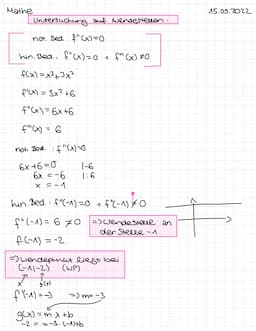 Mathe 15.09.2022
Untersuchung auf Wendestellen:
not. Bed. f"(x)=0
hin. Bed.: f"(x)=0 ∧ f'''(x)≠0
f(x)=x³+3x²
f'(x)= 3x²+6
f"(x)= 6x+6
f'''(x)= 6
not. Bed.: f"(x)=0
6x+6=0 |-6
6x=-6 |:6
x = -1
hin. Bed: f"(-1)=0 ∧ f'''(-1)≠0
f'''(-1)= 6 ≠0 => Wendestelle an
der Stelle -1
f(-1) = -2
=> Wendepunkt liegt bei
(-1|-2) (WP)
x f(x)
f'(-1)=-3 => m=-3
g(x)= m·x+b
-2 = -3·(-1)+b